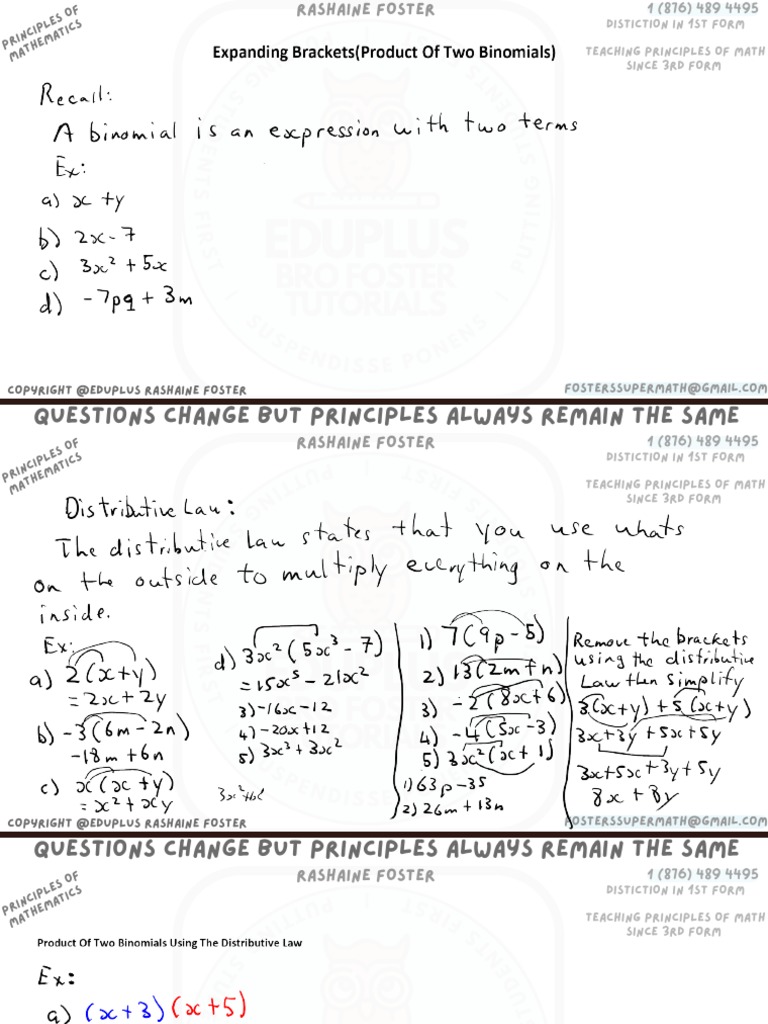 PRINCIPLES OF
MATHEMATICS
RASHAINE FOSTER
1 (876) 489 4495
DISTICTION IN 1ST FORM
TEACHING PRINCIPLES OF MATH
SINCE 3RD FORM
Expanding Brackets(Product Of Two Binomials)
Recall:
A binomial is an expression with two terms
Ex:
a) x + y
b) 2x - 7
c) 3x² + 5x
d) -7pq + 3m
EDUPLUS
BRO FOSTER
TUTORIALS
PUTTING STUDENTS FIRST
SUSPENDISSE PONENS
COPYRIGHT @EDUPLUS RASHAINE FOSTER
FOSTERSSUPERMATH@GMAIL.COM
QUESTIONS CHANGE BUT PRINCIPLES ALWAYS REMAIN THE SAME
PRINCIPLES OF
MATHEMATICS
RASHAINE FOSTER
1 (876) 489 4495
DISTICTION IN 1ST FORM
TEACHING PRINCIPLES OF MATH
SINCE 3RD FORM
Distributive Law:
The distributive Law states that you use whats
on the outside to multiply everything on the
inside.
Ex:
a) 2(x+y)
= 2x + 2y
b) -3(6m - 2n)
-18m + 6n
c) x(x + y)
= x² + xy
d) 3x²(5x³ - 7)
= 15x⁵ - 21x²
3) -16x - 12
4) -20x + 12
5) 3x³ + 3x²
1) 7(9p - 5)
2) 13(2m + n)
3) -2(8x + 6)
4) -4(5x - 3)
5) 3x²(x + 1)
1) 63p - 35
2) 26m + 13n
Remove the brackets
using the distributive
Law then simplify
3(x+y) + 5(x+y)
3x+3y + 5x+5y
3x+5x+3y+5y
8x + 8y
COPYRIGHT @EDUPLUS RASHAINE FOSTER
FOSTERSSUPERMATH@GMAIL.COM
QUESTIONS CHANGE BUT PRINCIPLES ALWAYS REMAIN THE SAME
PRINCIPLES OF
MATHEMATICS
RASHAINE FOSTER
1 (876) 489 4495
DISTICTION IN 1ST FORM
TEACHING PRINCIPLES OF MATH
SINCE 3RD FORM
Product Of Two Binomials Using The Distributive Law
Ex:
a) (x+3)(x+5)